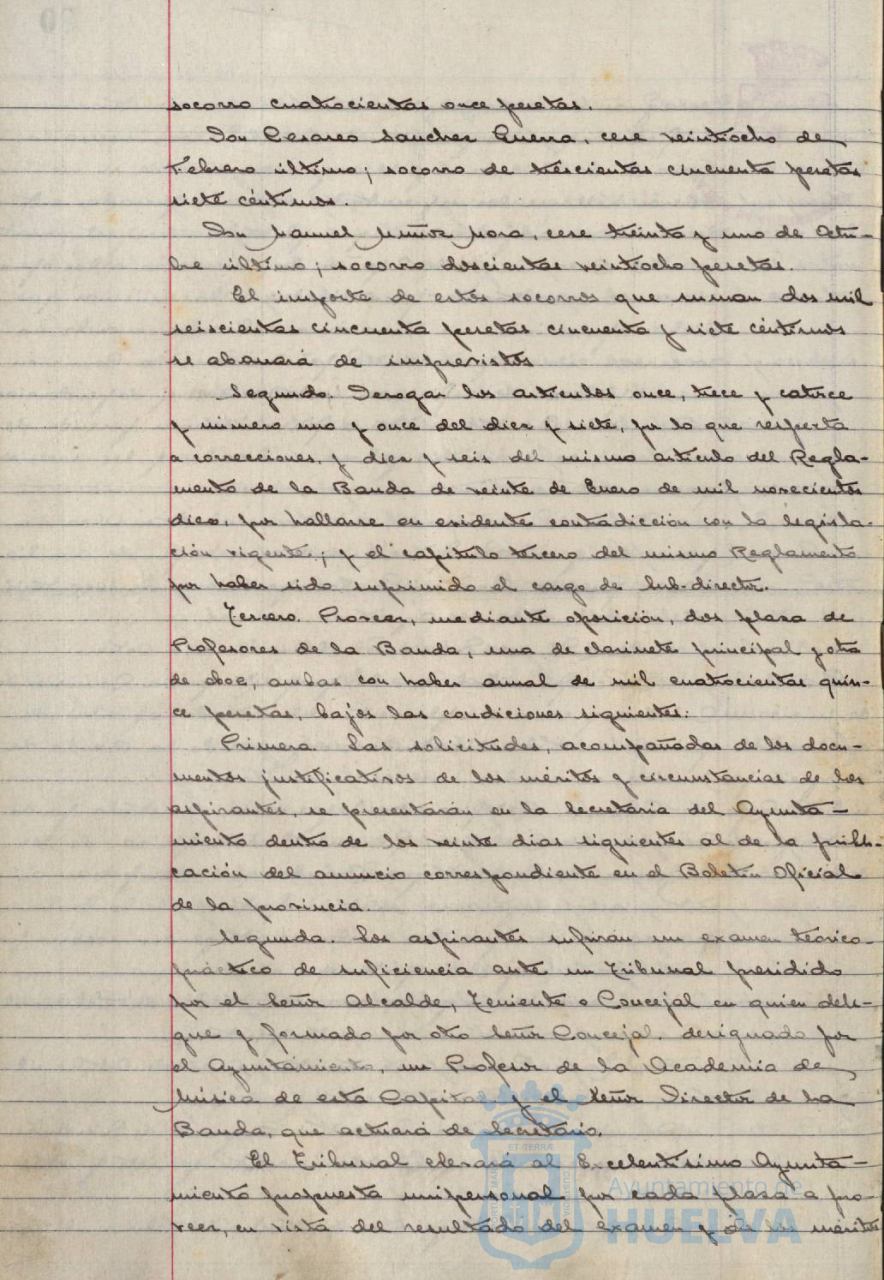 socorro cuatrocientas once pesetas.
Don Cesareo Sanchez Guerra, cese veintiocho de
Febrero último; socorro de trescientas cincuenta pesetas
siete céntimos.
Don Manuel Muñoz Mora, cese treinta y uno de Octu-
bre último; socorro doscientas veintiocho pesetas.
El importe de estos socorros que suman dos mil
seiscientas cincuenta pesetas cincuenta y siete céntimos
se abonará de imprevistos
Segundo. Derogar los artículos once, trece y catorce
y número uno y once del diez y siete, por lo que respecta
a correcciones, y diez y seis del mismo artículo del Regla-
mento de la Banda de veinte de Enero de mil novecientos
diez, por hallarse en evidente contradicción con la legisla-
ción vigente; y el capítulo tercero del mismo Reglamento
por haber sido suprimido el cargo de Sub-director.
Tercero. Proveer, mediante oposición, dos plaza de
Profesores de la Banda, una de clarinete principal y otra
de oboe, ambas con haber anual de mil cuatrocientas quin-
ce pesetas, bajos las condiciones siguientes:
Primera. Las solicitudes, acompañadas de los docu-
mentos justificativos de los méritos y circunstancias de los
aspirantes, se presentarán en la Secretaria del Ayunta-
miento dentro de los veinte dias siguientes al de la publi-
cación del anuncio correspondiente en el Boletin Oficial
de la provincia.
Segunda. Los aspirantes sufriran un examen teórico-
práctico de suficiencia ante un Tribunal presidido
por el Señor Alcalde, Teniente o Concejal en quien dele-
gue y formado por otro Señor Concejal designado por
el Ayuntamiento, un Profesor de la Academia de
Música de esta Capital y el Señor Director de la
Banda, que actuará de Secretario.
El Tribunal elevará al Excelentísimo Ayunta-
miento propuesta unipersonal por cada plaza a pro-
veer, en vista del resultado del examen y de los méritos
Ayuntamiento de
HUELVA